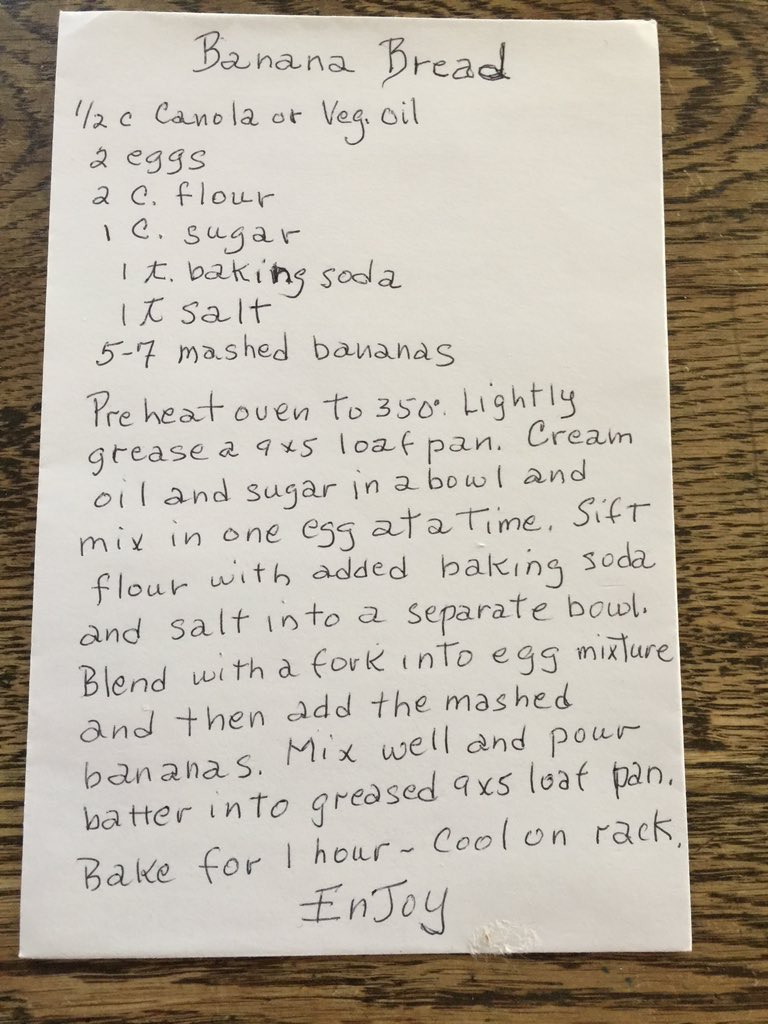 Banana Bread
1/2 c Canola or Veg. oil
2 eggs
2 C. flour
1 C. sugar
1 t. baking soda
1 t salt
5-7 mashed bananas
Preheat oven to 350°. Lightly
grease a 9x5 loaf pan. Cream
oil and sugar in a bowl and
mix in one egg at a Time. Sift
flour with added baking soda
and salt into a separate bowl.
Blend with a fork into egg mixture
and then add the mashed
bananas. Mix well and pour
batter into greased 9x5 loaf pan.
Bake for 1 hour - Cool on rack.
EnJoy